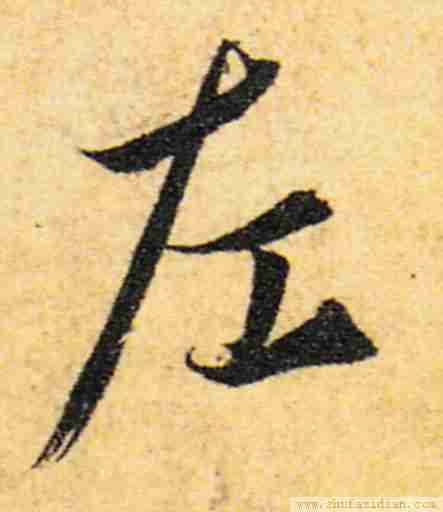 左
www.shufazidian.com